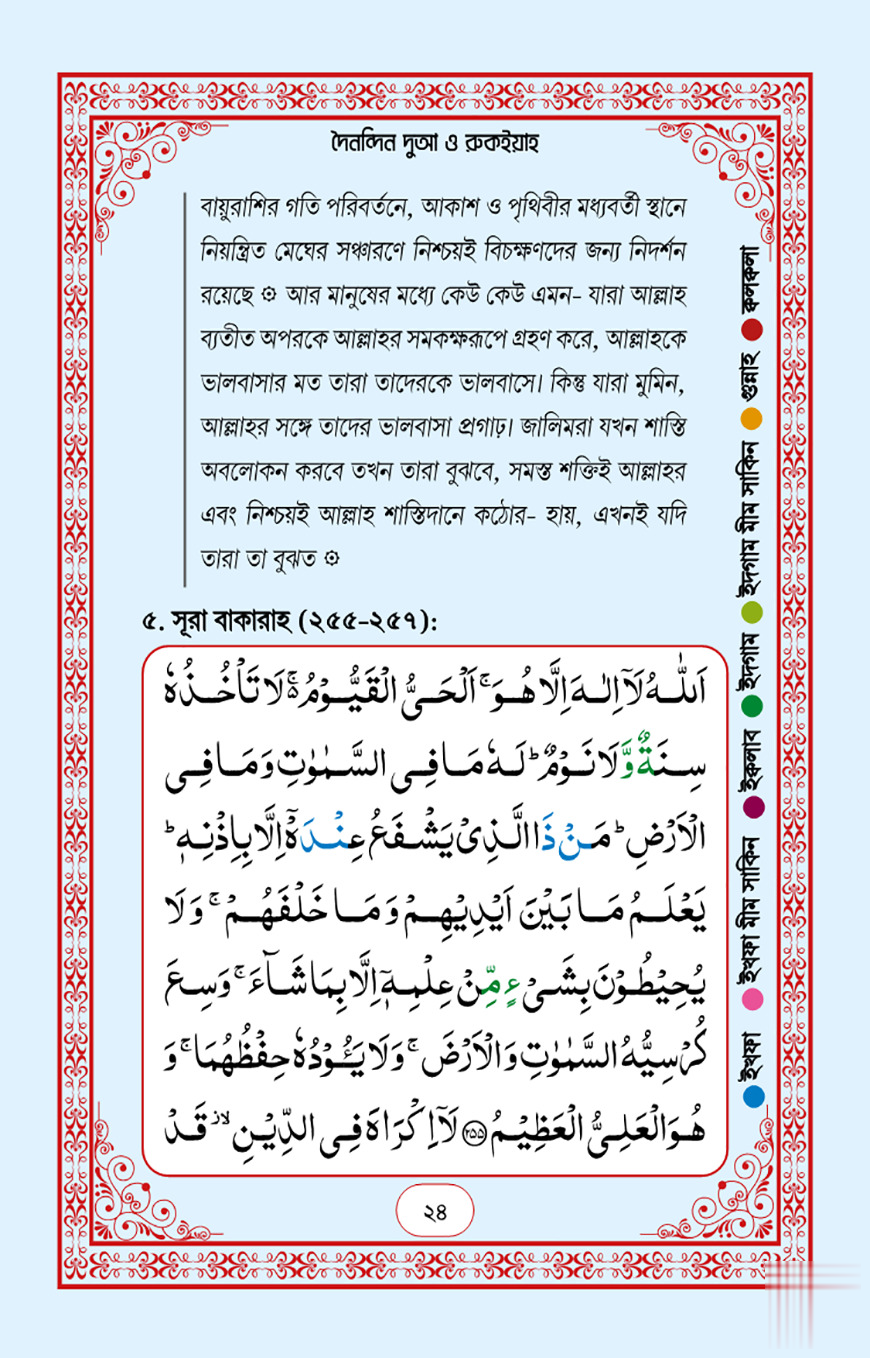 দৈনন্দিন দুআ ও রুকইয়াহ
বায়ুরাশির গতি পরিবর্তনে, আকাশ ও পৃথিবীর মধ্যবর্তী স্থানে
নিয়ন্ত্রিত মেঘের সঞ্চারণে নিশ্চয়ই বিচক্ষণদের জন্য নিদর্শন
রয়েছে ۞ আর মানুষের মধ্যে কেউ কেউ এমন- যারা আল্লাহ
ব্যতীত অপরকে আল্লাহর সমকক্ষরূপে গ্রহণ করে, আল্লাহকে
ভালবাসার মত তারা তাদেরকে ভালবাসে। কিন্তু যারা মুমিন,
আল্লাহর সঙ্গে তাদের ভালবাসা প্রগাঢ়। জালিমরা যখন শাস্তি
অবলোকন করবে তখন তারা বুঝবে, সমস্ত শক্তিই আল্লাহর
এবং নিশ্চয়ই আল্লাহ শাস্তিদানে কঠোর- হায়, এখনই যদি
তারা তা বুঝত ۞
৫. সূরা বাকারাহ (২৫৫-২৫৭):
اَللّٰهُ لَاۤ اِلٰهَ اِلَّا هُوَ ۚ اَلْحَىُّ الْقَيُّوْمُ ۚ۬ لَا تَاْخُذُهٗ
سِنَةٌ وَّلَا نَوْمٌ ؕ لَهٗ مَا فِى السَّمٰوٰتِ وَمَا فِى
الْاَرْضِ ؕ مَنْ ذَا الَّذِىْ يَشْفَعُ عِنْدَهٗۤ اِلَّا بِاِذْنِهٖ ؕ
يَعْلَمُ مَا بَيْنَ اَيْدِيْهِمْ وَمَا خَلْفَهُمْ ۚ وَلَا
يُحِيْطُوْنَ بِشَىْءٍ مِّنْ عِلْمِهٖۤ اِلَّا بِمَا شَآءَ ۚ وَسِعَ
كُرْسِيُّهُ السَّمٰوٰتِ وَالْاَرْضَ ۚ وَلَا يَـُٔوْدُهٗ حِفْظُهُمَا ۚ وَ
هُوَ الْعَلِىُّ الْعَظِيْمُ ﴿۲۵۵﴾ لَاۤ اِكْرَاهَ فِى الدِّيْنِ ۟ۙ قَدْ
ইখফা
ইখফা মীম সাকিন
ইক্বলাব
ইদগাম
ইদগাম মীম সাকিন
গুন্নাহ
ক্বলকলা
২৪